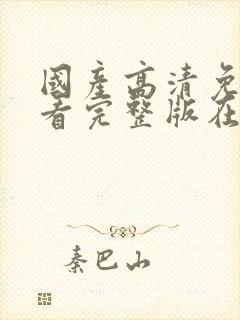 國產高清免
看完整版在
秦巴山